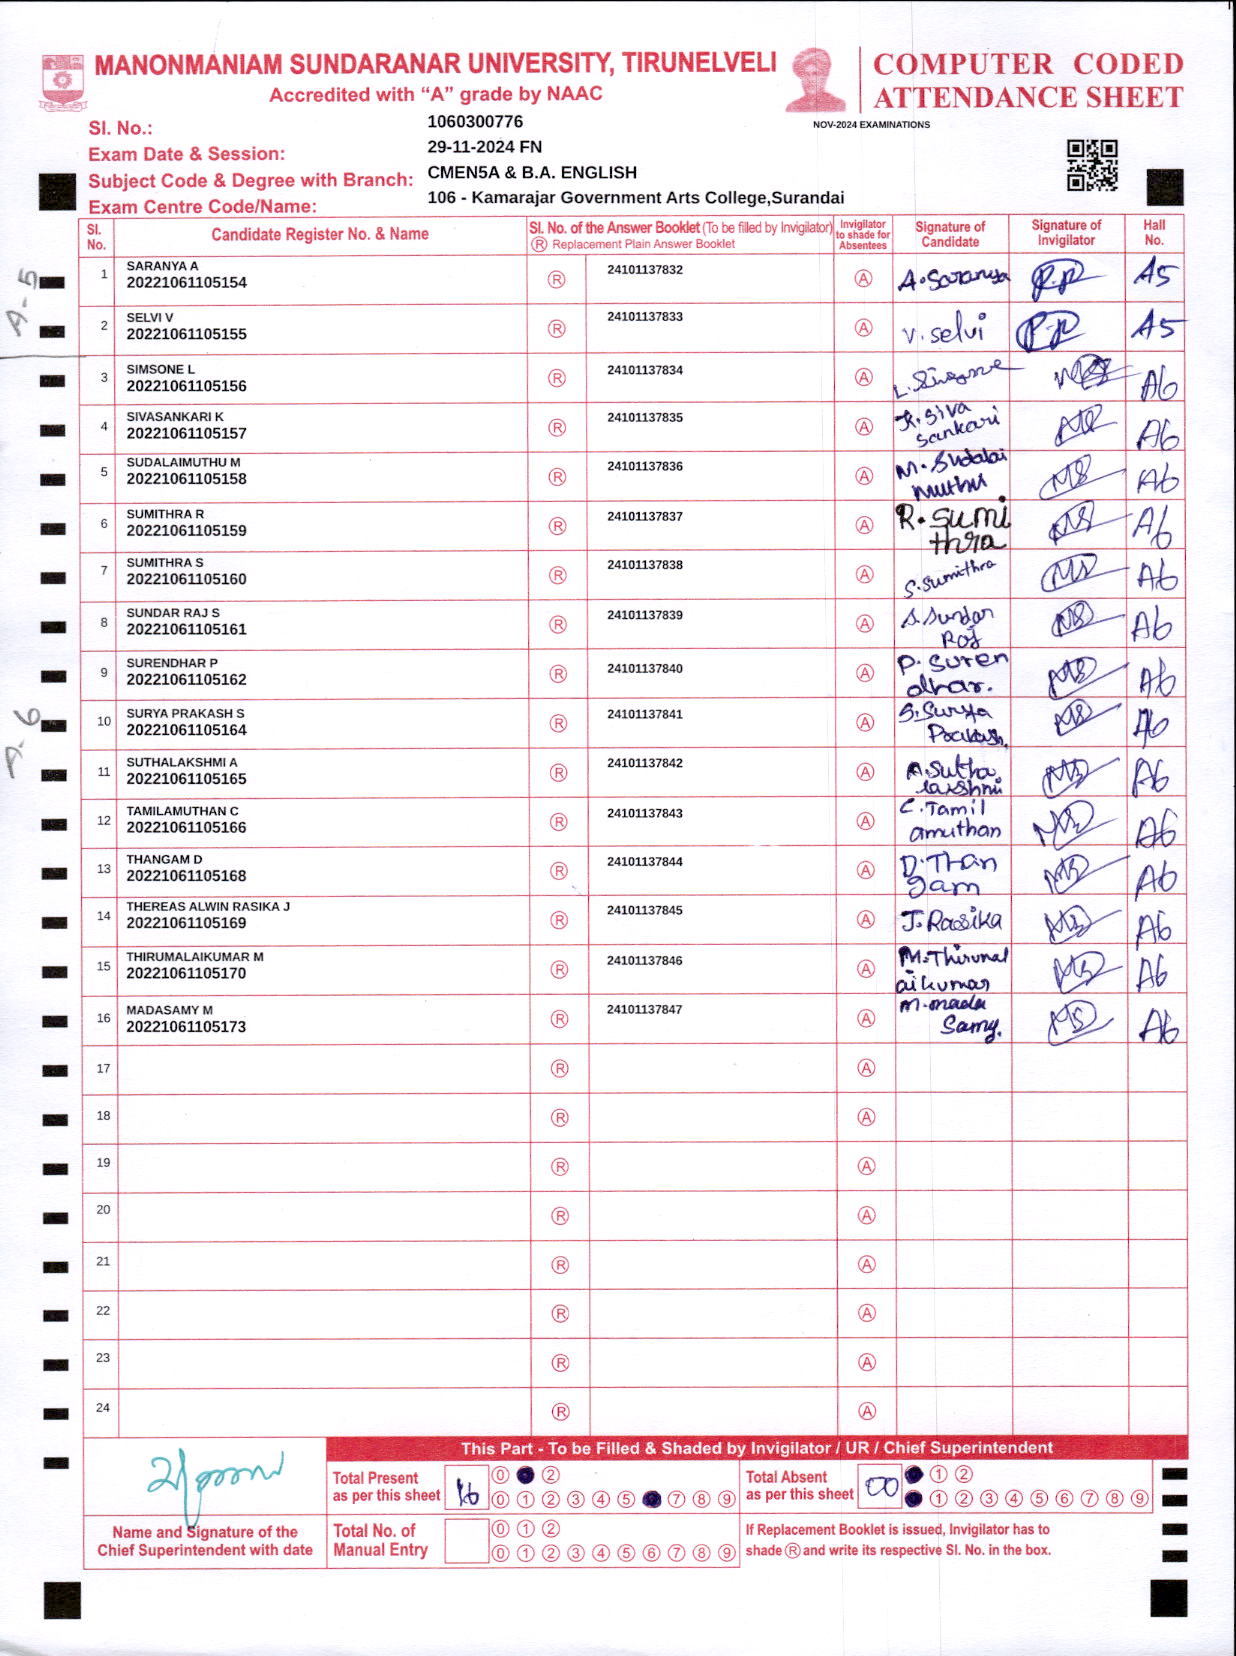 MANONMANIAM SUNDARANAR UNIVERSITY, TIRUNELVELI
Accredited with “A” grade by NAAC
COMPUTER CODED
ATTENDANCE SHEET
NOV-2024 EXAMINATIONS
Sl. No.: 1060300776
Exam Date & Session: 29-11-2024 FN
Subject Code & Degree with Branch: CMEN5A & B.A. ENGLISH
Exam Centre Code/Name: 106 - Kamarajar Government Arts College,Surandai
Sl. No. Candidate Register No. & Name Sl. No. of the Answer Booklet (To be filled by Invigilator) Ⓡ Replacement Plain Answer Booklet Invigilator to shade for Absentees Signature of Candidate Signature of Invigilator Hall No.
A-5
1 SARANYA A 20221061105154 Ⓡ 24101137832 Ⓐ A. Saranya A5
2 SELVI V 20221061105155 Ⓡ 24101137833 Ⓐ V. selvi A5
3 SIMSONE L 20221061105156 Ⓡ 24101137834 Ⓐ L. Simsone A6
4 SIVASANKARI K 20221061105157 Ⓡ 24101137835 Ⓐ K. Siva Sankari A6
5 SUDALAIMUTHU M 20221061105158 Ⓡ 24101137836 Ⓐ M. Sudalai muthu A6
6 SUMITHRA R 20221061105159 Ⓡ 24101137837 Ⓐ R. Sumi thra A6
7 SUMITHRA S 20221061105160 Ⓡ 24101137838 Ⓐ S. Sumithra A6
8 SUNDAR RAJ S 20221061105161 Ⓡ 24101137839 Ⓐ S. Sundar Raj A6
9 SURENDHAR P 20221061105162 Ⓡ 24101137840 Ⓐ P. Suren dhar. A6
A-6
10 SURYA PRAKASH S 20221061105164 Ⓡ 24101137841 Ⓐ S. Surya Prakash. A6
11 SUTHALAKSHMI A 20221061105165 Ⓡ 24101137842 Ⓐ A. Sutha lakshmi A6
12 TAMILAMUTHAN C 20221061105166 Ⓡ 24101137843 Ⓐ C. Tamil amuthan A6
13 THANGAM D 20221061105168 Ⓡ 24101137844 Ⓐ D. Than gam A6
14 THEREAS ALWIN RASIKA J 20221061105169 Ⓡ 24101137845 Ⓐ J. Rasika A6
15 THIRUMALAIKUMAR M 20221061105170 Ⓡ 24101137846 Ⓐ M. Thirumal aikumar A6
16 MADASAMY M 20221061105173 Ⓡ 24101137847 Ⓐ M. mada Samy. A6
17 Ⓡ Ⓐ
18 Ⓡ Ⓐ
19 Ⓡ Ⓐ
20 Ⓡ Ⓐ
21 Ⓡ Ⓐ
22 Ⓡ Ⓐ
23 Ⓡ Ⓐ
24 Ⓡ Ⓐ
This Part - To be Filled & Shaded by Invigilator / UR / Chief Superintendent
Total Present as per this sheet 16
0 2
0 1 2 3 4 5 7 8 9
Total Absent as per this sheet 00
1 2
1 2 3 4 5 6 7 8 9
Name and Signature of the
Chief Superintendent with date
Total No. of Manual Entry
0 1 2
0 1 2 3 4 5 6 7 8 9
If Replacement Booklet is issued, Invigilator has to
shade Ⓡ and write its respective Sl. No. in the box.